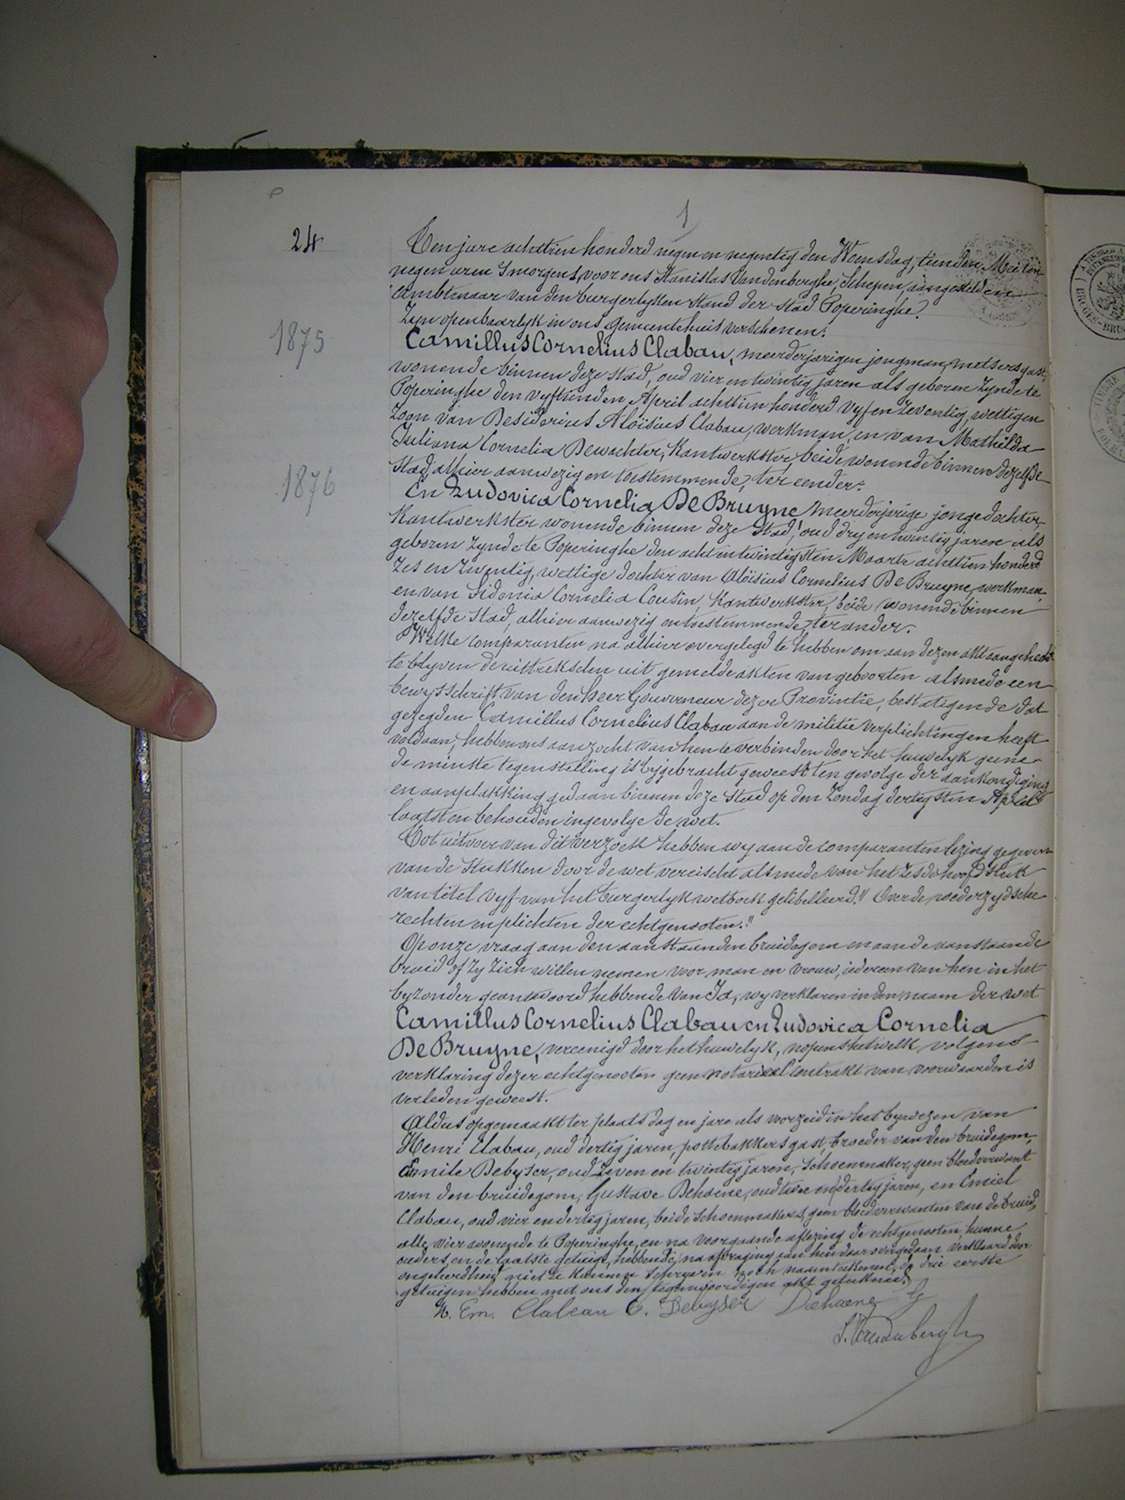 1
24
Ten jare achttien honderd negen en negentig den Woensdag, tienden Mei ten
negen uren 's morgens, voor ons Stanislas Vandenberghe, Schepen, aangestelden
Ambtenaar van den burgerlyken stand der stad Poperinghe.
Zyn openbaarlyk in ons gemeentehuis verschenen:
1875
Camillus Cornelius Clabau, meerderjarigen jongman, metsersgast,
wonende binnen deze stad, oud vier en twintig jaren als geboren zynde te
Poperinghe den vyftienden April achttien honderd vyf en zeventig, wettigen
zoon van Desiderius Aloïsius Clabau, werkman, en van Mathilda
Juliana Cornelia Dewachter, Kantwerkster, beide wonende binnen dezelfde
stad, alhier aanwezig en toestemmende, ter eender.
1876
En Ludovica Cornelia De Bruyne, meerderjarige jongedochter,
Kantwerkster wonende binnen deze stad, oud dry en twintig jaren als
geboren zynde te Poperinghe den acht en twintigsten Maarte achttien honderd
zes en zeventig, wettige dochter van Aloïsius Cornelius De Bruyne, werkman,
en van Sidonia Cornelia Cousin, Kantwerkster, beide wonende binnen
dezelfde stad, alhier aanwezig en toestemmende, ter ander.
Welke comparanten na alhier overgelegd te hebben om aan dezen akt aangehecht
te blyven de uittrekselen uit gemelde akten van geboorten alsmede een
bewysschrift van den heer Gouverneur dezer Provintie, bestatigende dat
gezegden Camillus Cornelius Clabau aan de militie verplichtingen heeft
voldaan, hebben ons aanzocht van hen te verbinden door het huwelyk geene
de minste tegenstelling is bygebracht geweest ten gevolge der aankondiging
en aanplakking gedaan binnen deze stad op den Zondag dertigsten April
laatsten behouden ingevolge de wet.
Tot uitvoer van dit verzoek hebben wy aan de comparanten lezing gegeven
van de stukken door de wet vereischt alsmede van het zesde hoofdstuk
van titel vyf van het burgerlyk wetboek gelibelleerd: "Over de wederzydsche
rechten en plichten der echtgenoten."
Op onze vraag aan den aanstaanden bruidegom en aan de aanstaande
bruid of zy zich willen nemen voor man en vrouw, iedereen van hen in het
byzonder geantwoord hebbende van Ja, wy verklaren in den naam der wet
Camillus Cornelius Clabau en Ludovica Cornelia
De Bruyne, vereenigd door het huwelyk, nopens hetwelk volgens
verklaring dezer echtgenoten geen notariëel Contrakt van voorwaarden is
verleden geweest.
Aldus opgemaakt ter plaats dag en jare als voorzeid in het bywezen van
Henri Clabau, oud dertig jaren, pottebakkersgast, broeder van den bruidegom,
Emile Debyser, oud zeven en twintig jaren, Schoenmaker, geen bloedverwant
van den bruidegom, Gustave Dehaene, oud twee en dertig jaren, en Emiel
Clabau, oud vier en dertig jaren, beide Schoenmakers, geen bloedverwanten van de bruid,
alle vier wonende te Poperinghe, en na voorgaande aflezing de echtgenoten, hunne
ouders, en de laatste getuige, hebbende, na afvraging aan hun door ons gedaan verklaard door
ongeleerdheid niet te kunnen schryven noch naamteekenen, de drie eerste
getuigen hebben met ons den tegenwoordigen akt geteekend.
H. Em. Clabau E. Debyser Dehaene G
S. Vandenberghe